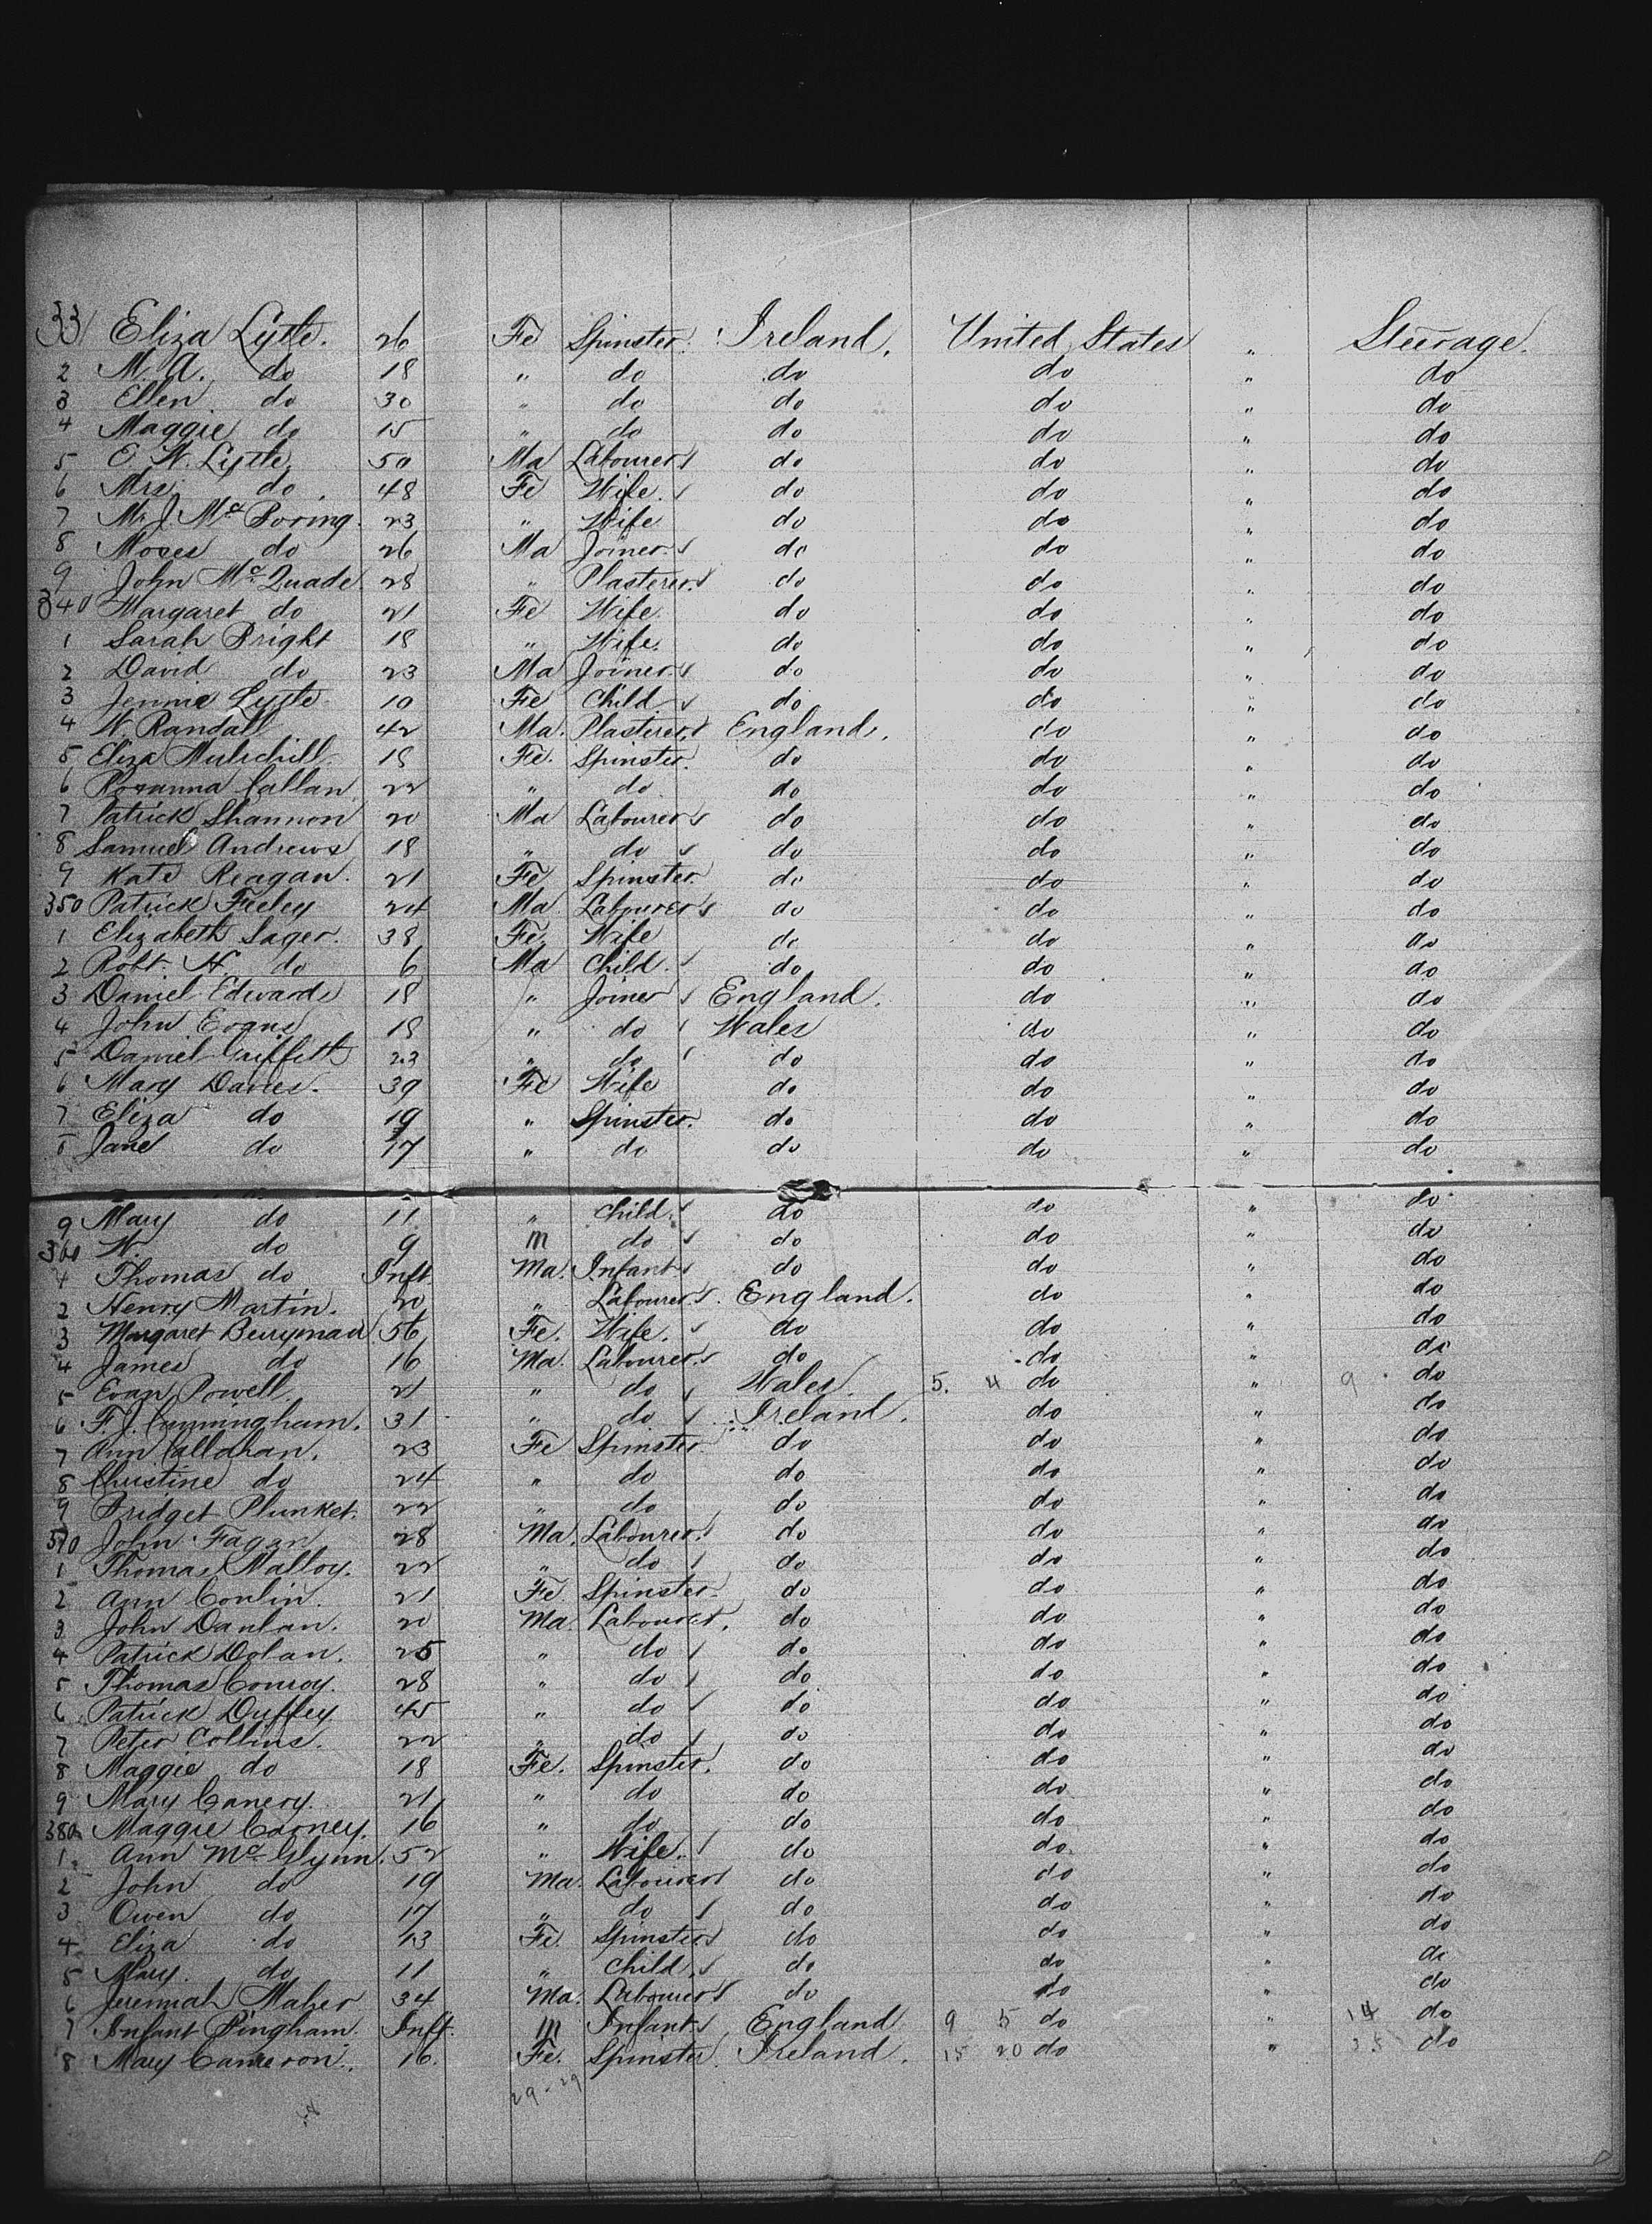 331 Eliza Lytle. 26 Fe Spinster. Ireland. United States " Steerage.
2 M. A. do 18 " do do do " do
3 Ellen do 30 " do do do " do
4 Maggie do 15 " do do do " do
5 E. W. Lytle. 50 Ma Labourer do do " do
6 Mrs do 48 Fe Wife. do do " do
7 M. J. Mc Boring. 23 " Wife do do " do
8 Moses do 26 Ma Joiner do do " do
9 John Mc Quade. 28 " Plasterer. do do " do
340 Margaret do 21 Fe Wife. do do " do
1 Sarah Bright 18 " Wife. do do " do
2 David do 23 Ma Joiner. do do " do
3 Jennie Lytle 10 Fe Child do do " do
4 W. Randall 42 Ma. Plasterer. England. do " do
5 Eliza 18 Fe. Spinster. do do " do
6 Roxanna Callan 22 " do do do " do
7 Patrick Shannon 20 Ma Labourer do do " do
8 Samuel Andrews 18 " do do do " do
9 Kate Reagan. 21 Fe Spinster. do do " do
350 Patrick Feeley 24 Ma Labourer do do " do
1 Elizabeth Sager. 38 Fe. Wife do do " do
2 Robt. H. do 6 Ma Child. do do " do
3 Daniel Edwards 18 " Joiner England. do " do
4 John Evans 18 " do Wales do " do
5 Daniel Griffith 23 " do do do " do
6 Mary Davies. 39 Fe Wife do do " do
7 Eliza do 19 " Spinster. do do " do
8 Jane do 17 " do do do " do
9 Mary do 11 " Child. do do " do
360 W. do 9 m do do do " do
1 Thomas do Inft. Ma. Infant do do " do
2 Henry Martin. 20 " Labourer. England. do " do
3 Margaret Berryman 56 Fe. Wife. do do " do
4 James do 16 Ma. Labourer. do do " do
5 Evan Powell 21 " do Wales. 5. 4 do " 9 do
6 F. J. Cunningham. 31 " do Ireland. do " do
7 Ann Callahan. 23 Fe Spinster. do do " do
8 Christine do 24 " do do do " do
9 Bridget Plunket. 22 " do do do " do
370 John Fagan 28 Ma. Labourer. do do " do
1 Thomas Malloy. 22 " do do do " do
2 Ann Conlin. 21 Fe. Spinster. do do " do
3 John Danlan. 20 Ma. Labourer. do do " do
4 Patrick Dolan. 25 " do do do " do
5 Thomas Conroy. 28 " do do do " do
6 Patrick Duffey 45 " do do do " do
7 Peter Collins. 22 " do do do " do
8 Maggie do 18 Fe. Spinster. do do " do
9 Mary Canery. 21 " do do do " do
380 Maggie Carney. 16 " do do do " do
1 Ann Mc Glynn. 52 " Wife. do do " do
2 John do 19 Ma. Labourer do do " do
3 Owen do 17 " do do do " do
4 Eliza do 13 Fe. Spinster do do " do
5 Mary. do 11 " Child. do do " do
6 Jeremiah Maher 34 Ma. Labourer do do " do
7 Infant Bingham. Inft. m Infant England 9 5 do " 14 do
8 Mary Cameron. 16. Fe. Spinster. Ireland. 15 20 do " 35 do
29-29